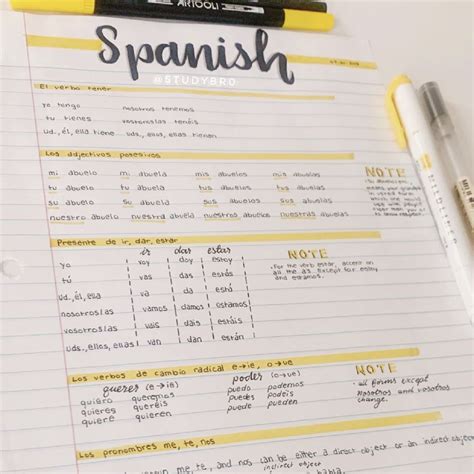 ARTOOLI
Spanish
@STUDYBRO
El verbo tener
yo tengo nosotros tenemos
tú tienes vosotros/as tenéis
ud., él, ella tiene uds., ellos, ellas tienen
Los adjectivos posesivos
mi abuelo mi abuela mis abuelos mis abuelas
tu abuelo tu abuela tus abuelos tus abuelas
su abuelo su abuela sus abuelos sus abuelas
nuestro abuelo nuestra abuela nuestros abuelos nuestras abuelas
NOTE
Presente de ir, dar, estar
ir dar estar
yo voy doy estoy
tú vas das estás
ud., él, ella va da está
nosotros/as vamos damos estamos
vosotros/as vais dais estáis
uds., ellos, ellas van dan están
NOTE
• For the verb estar, accent on
all the as. Except for estoy
and estamos.
MILDLINER
Los verbos de cambio radical e→ie, o→ve
querer (e→ie) poder (o→ve)
quiero queremos puedo podemos
quieres queréis puedes podéis
quiere quieren puede pueden
NOTE
• all forms except
nosotros and vosotros
change.
Los pronombres me, te, nos
me, te, and nos can be either a direct object or an indirect
indirect object